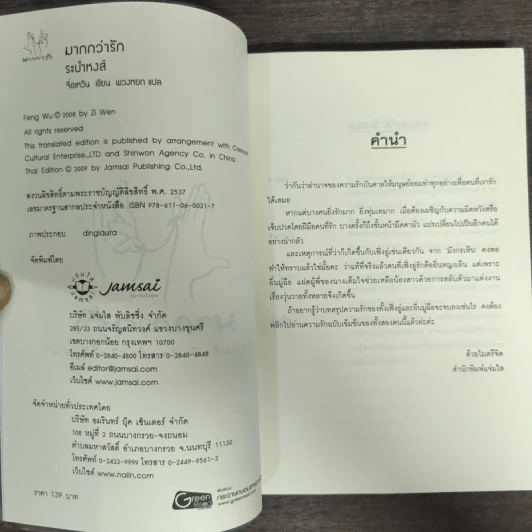 มากกว่ารัก
มากกว่ารัก
ระบำหงส์
จื่อเหวิน เขียน พวงหยก แปล
Feng Wu © 2008 by Zi Wen
All rights reserved
This translated edition is published by arrangement with Creative
Cultural Enterprise.,LTD and Shinwon Agency Co. in China
Thai Edition © 2009 by Jamsai Publishing Co.,Ltd.
สงวนลิขสิทธิ์ตามพระราชบัญญัติลิขสิทธิ์ พ.ศ. 2537
เลขมาตรฐานสากลประจำหนังสือ ISBN 978-611-06-0021-7
ภาพประกอบ dinglaura
จัดพิมพ์โดย
jamsai
บริษัท แจ่มใส พับลิชชิ่ง จำกัด
285/33 ถนนจรัญสนิทวงศ์ แขวงบางขุนศรี
เขตบางกอกน้อย กรุงเทพฯ 10700
โทรศัพท์ 0-2840-4800 โทรสาร 0-2840-4848
อีเมล์ editor@jamsai.com
เว็บไซต์ www.jamsai.com
จัดจำหน่ายทั่วประเทศโดย
บริษัท อมรินทร์ บุ๊ค เซ็นเตอร์ จำกัด
108 หมู่ที่ 2 ถนนบางกรวย-จงถนอม
ตำบลมหาสวัสดิ์ อำเภอบางกรวย จ.นนทบุรี 11130
โทรศัพท์ 0-2423-9999 โทรสาร 0-2449-9561-3
เว็บไซต์ www.naiin.com
ราคา 139 บาท
Green
คำนำ
ว่ากันว่าอำนาจของความรักบันดาลให้มนุษย์ยอมทำทุกอย่างเพื่อคนที่เรารัก
ได้เสมอ
หากแต่บางคนยิ่งรักมาก ยิ่งทุ่มเทมาก เมื่อต้องเผชิญกับความผิดหวังหรือ
เจ็บปวดโดยฝีมือคนที่รัก บางครั้งก็ถึงขั้นหน้ามืดตามัว แปรเปลี่ยนไปเป็นอีกคนได้
อย่างน่ากลัว
และเหตุการณ์ที่ว่าก็เกิดขึ้นกับเฟิ่งอู่เช่นเดียวกัน จาก 'มังกรเหิน' คงพอ
ทำให้ทราบแล้วใช่มั้ยคะ ว่าแท้ที่จริงแล้วคนที่เฟิ่งอู่รักคืออิ่นหมูเอ้น แต่เพราะ
อิ่นมู่ฉือ แฝดผู้พี่ของนางเต็มใจช่วยเหลือน้องสาวด้วยการสลับตัวมาแต่งงาน
เรื่องวุ่นวายทั้งหลายจึงเกิดขึ้น
ถ้าอยากรู้ว่าบทสรุปความรักของทั้งเฟิ่งอู่และอิ่นมู่ฉือจะจบลงเช่นไร คงต้อง
พลิกไปอ่านความรักฉบับเข้มข้นของทั้งสองคนนี้แล้วล่ะค่ะ
ด้วยไมตรีจิต
สำนักพิมพ์แจ่มใส